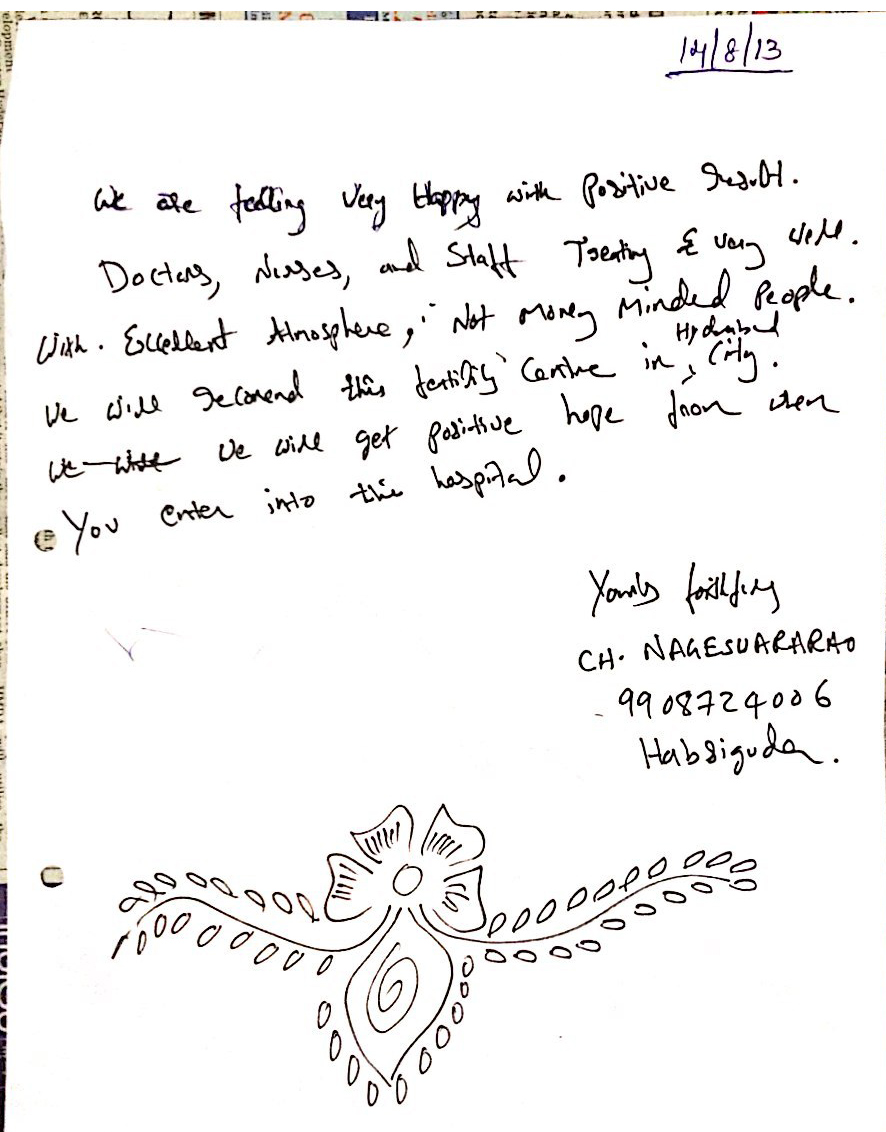 14/8/13
We are feeling Very Happy with Positive Result.
Doctors, Nurses, and Staff Treating & very well.
With. Excellent Atmosphere, Not Money Minded People.
Hyderabad
We will Recomend this fertility Centre in City.
We will We will get positive hope from when
You enter into this hospital.
Yours faithfully
CH. NAGESWARARAO
9908724006
Habsiguda.